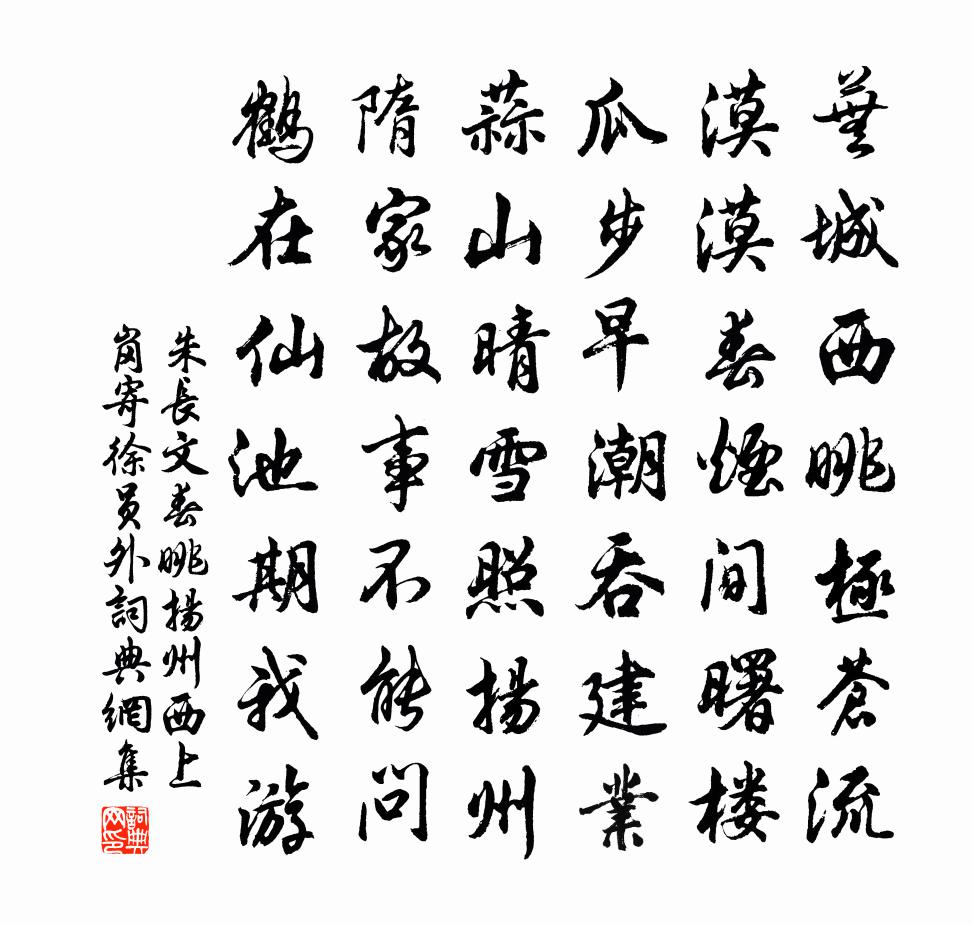 蕪城西眺極蒼流
漠漠春煙間曙楼
瓜步早潮吞建業
蒜山晴雪照揚州
隋家故事不能問
鶴在仙池期我游
朱長文春眺揚州西上
崗寄徐員外詞典網集
詞典网印